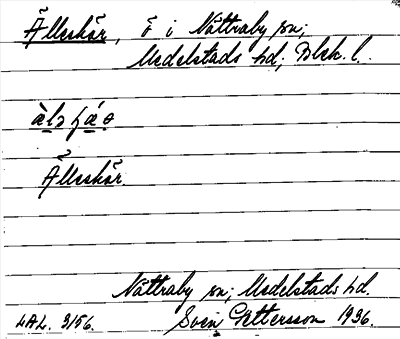 Älleskär, ö i Nättraby sn;
Medelstads hd; Blek. l.
Älleskär.
Nättraby sn; Medelstads hd.
LAL. 3156. Sven Pettersson 1936.